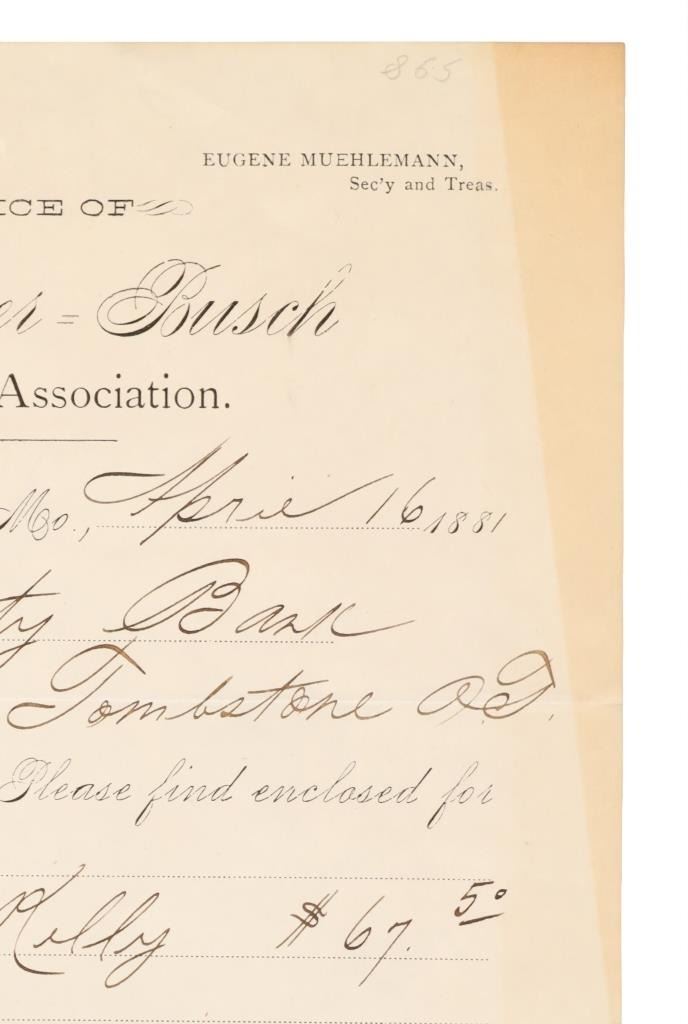 865
EUGENE MUEHLEMANN,
Sec'y and Treas.
ICE OF
er = Busch
Association.
Mo., April 16 1881
ty Bank
Tombstone A.T.
Please find enclosed for
Kelly $ 67. 50